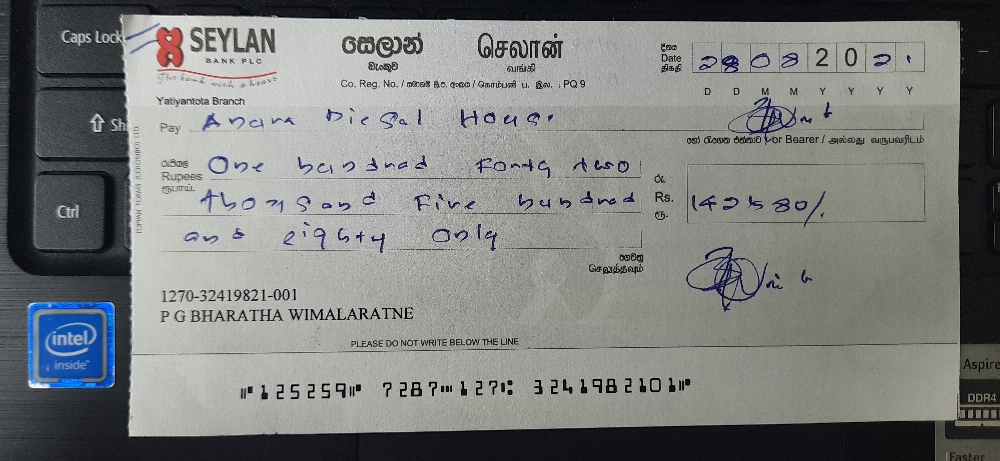 Caps Lock
SEYLAN
BANK PLC
The bank with a heart
සෙලාන්
බැංකුව
செலான்
வங்கி
Co. Reg. No. / සමාගම් ලි.ප. අංකය / கொம்பனி ப. இல. : PQ 9
දිනය
Date
திகதி
28 08 2021.
D D M M Y Y Y Y
Yatiyantota Branch
Pay Anura Diesal House.
හෝ රැගෙන එන්නාට / or Bearer / அல்லது வருபவரிடம்
රුපියල්
Rupees
ரூபாய்
One hundrad Fonty two
thousand Five hundrad
and eighty only
රු.
Rs.
ரூ.
142580/.
ගෙවනු
செலுத்தவும்
1270-32419821-001
P G BHARATHA WIMALARATNE
PLEASE DO NOT WRITE BELOW THE LINE
125259 7287 127 3241982101
Ctrl
intel
inside
Aspire
DDR4
Faster